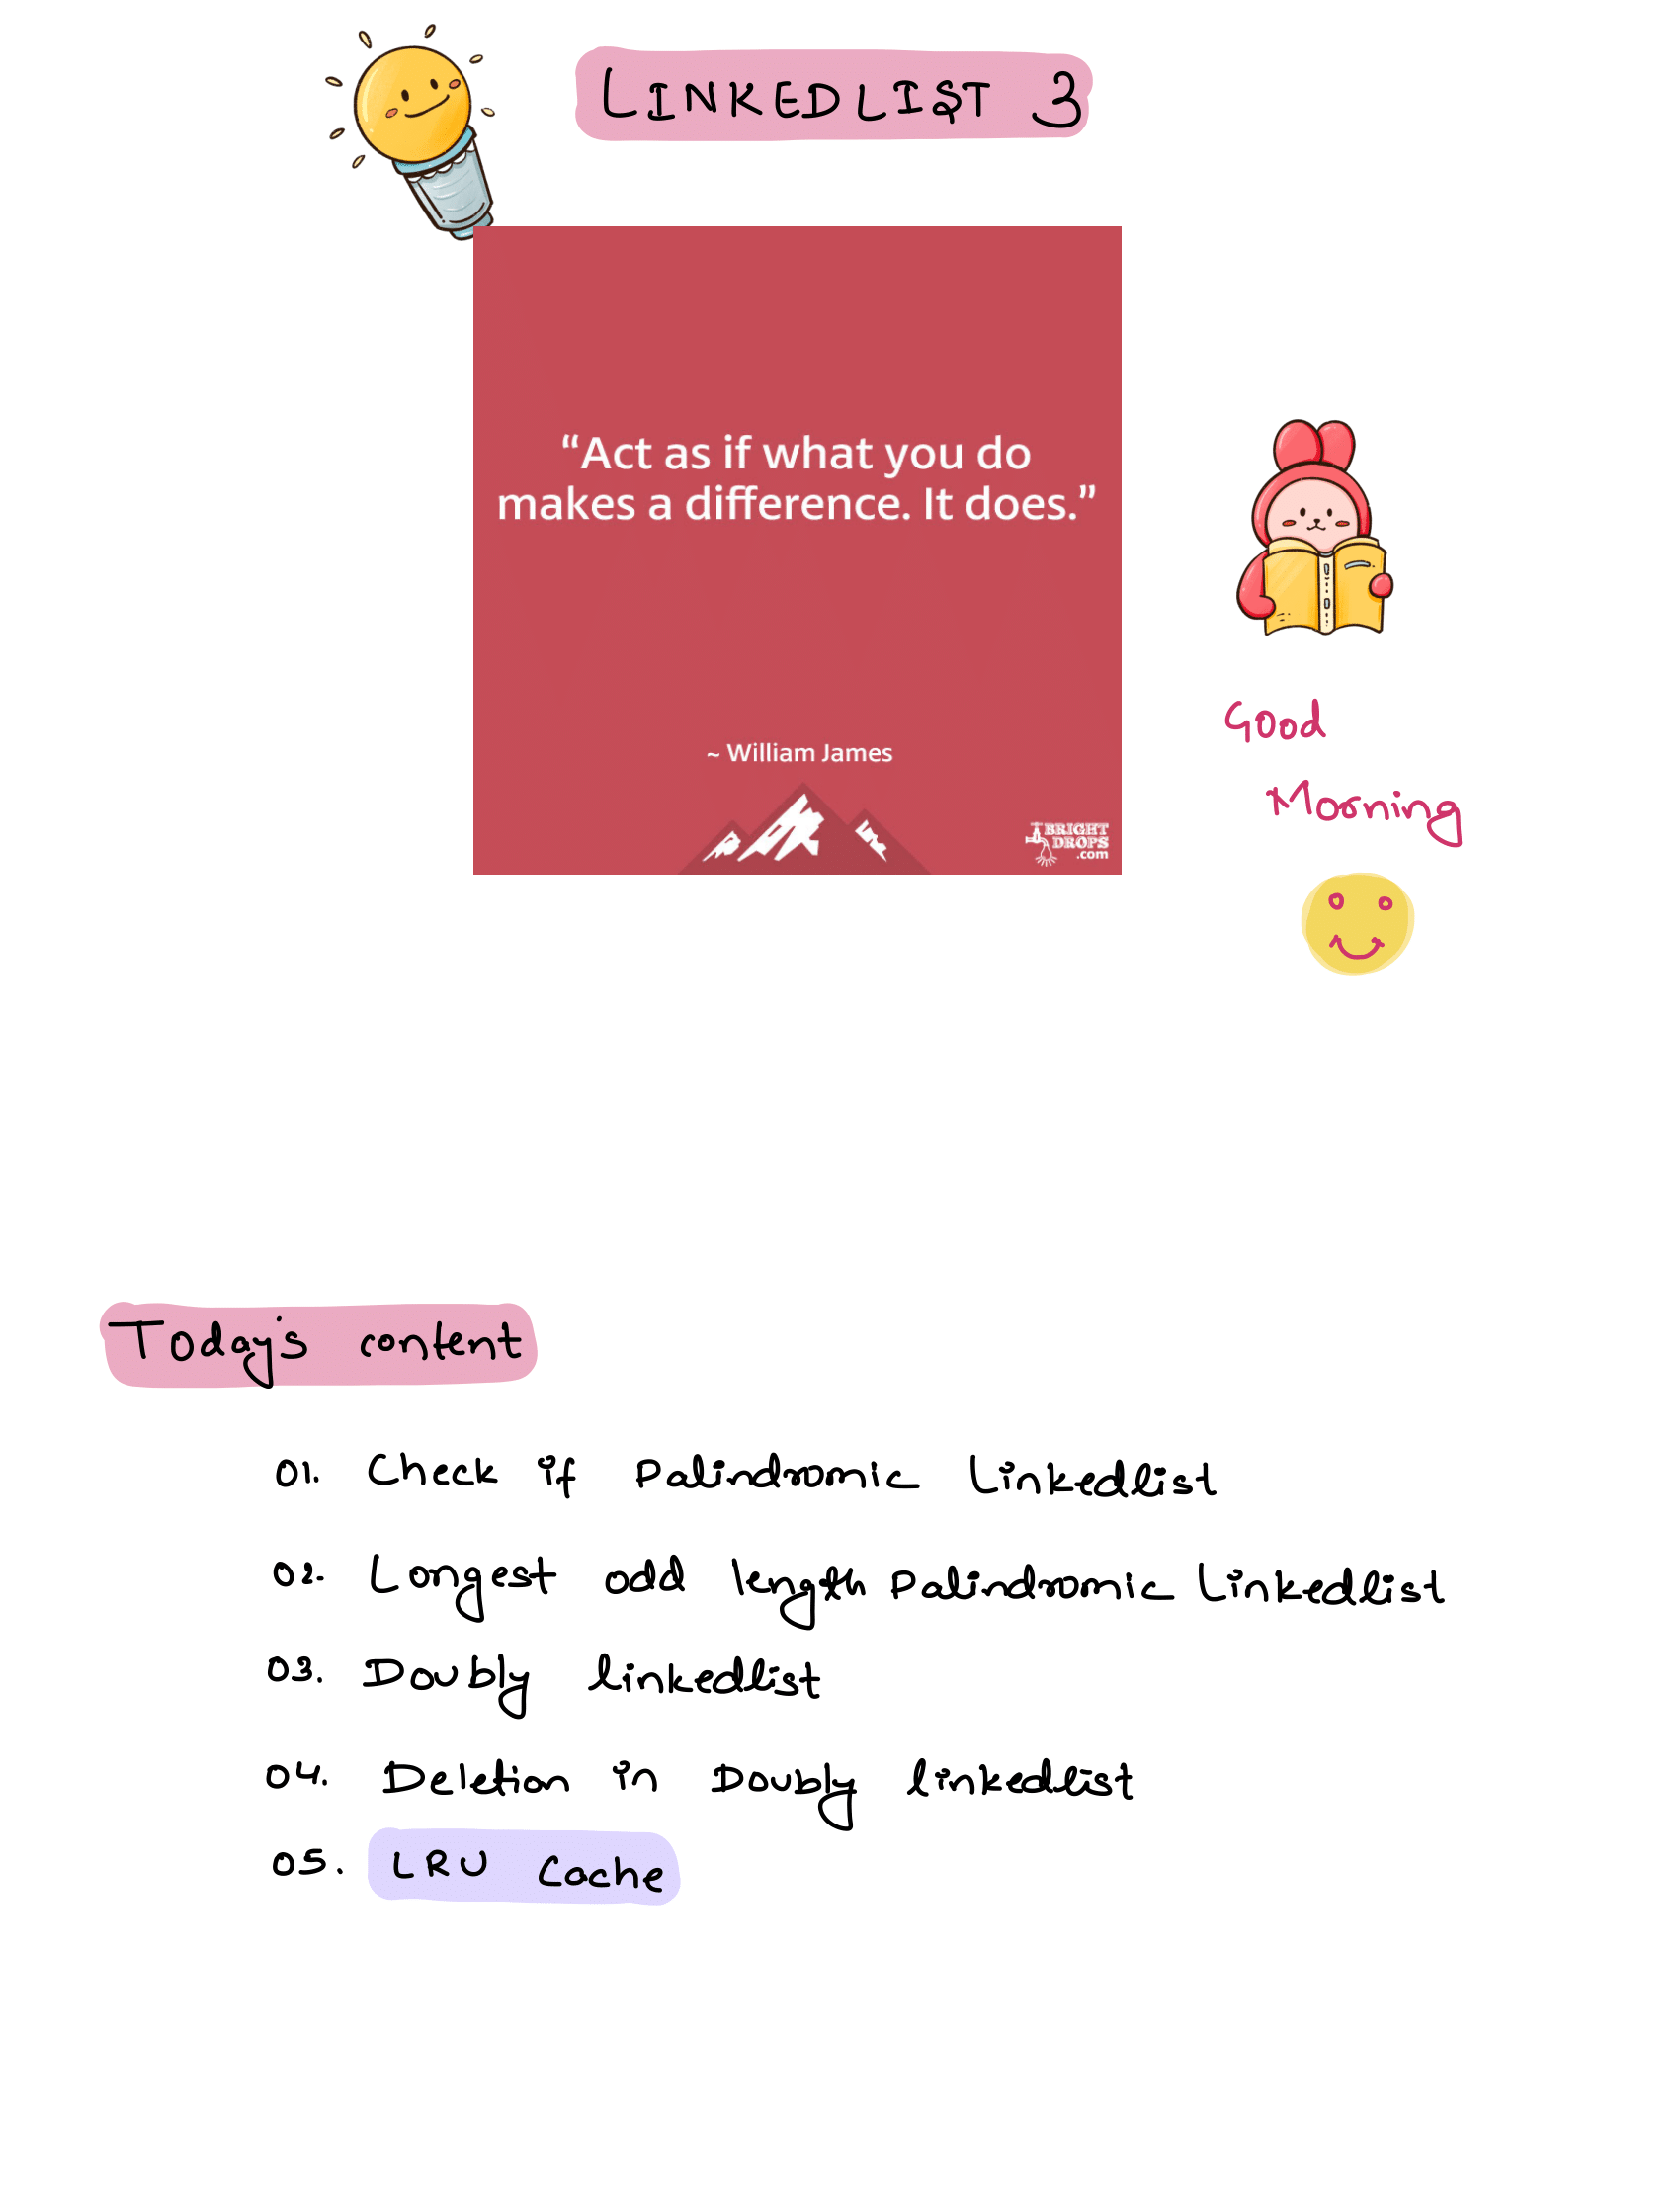 LINKEDLIST 3
“Act as if what you do
makes a difference. It does.”
~ William James
BRIGHT
DROPS
.com
Good
Morning
Today's content
01. Check if Palindromic Linkedlist
02. Longest odd length Palindromic Linkedlist
03. Doubly linkedlist
04. Deletion in Doubly linkedlist
05. LRU Cache